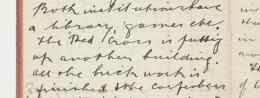 Both institutions have
a library, games etc.
The Red Cross is putting
up another building.
all the brick work is
finished & the carpenters